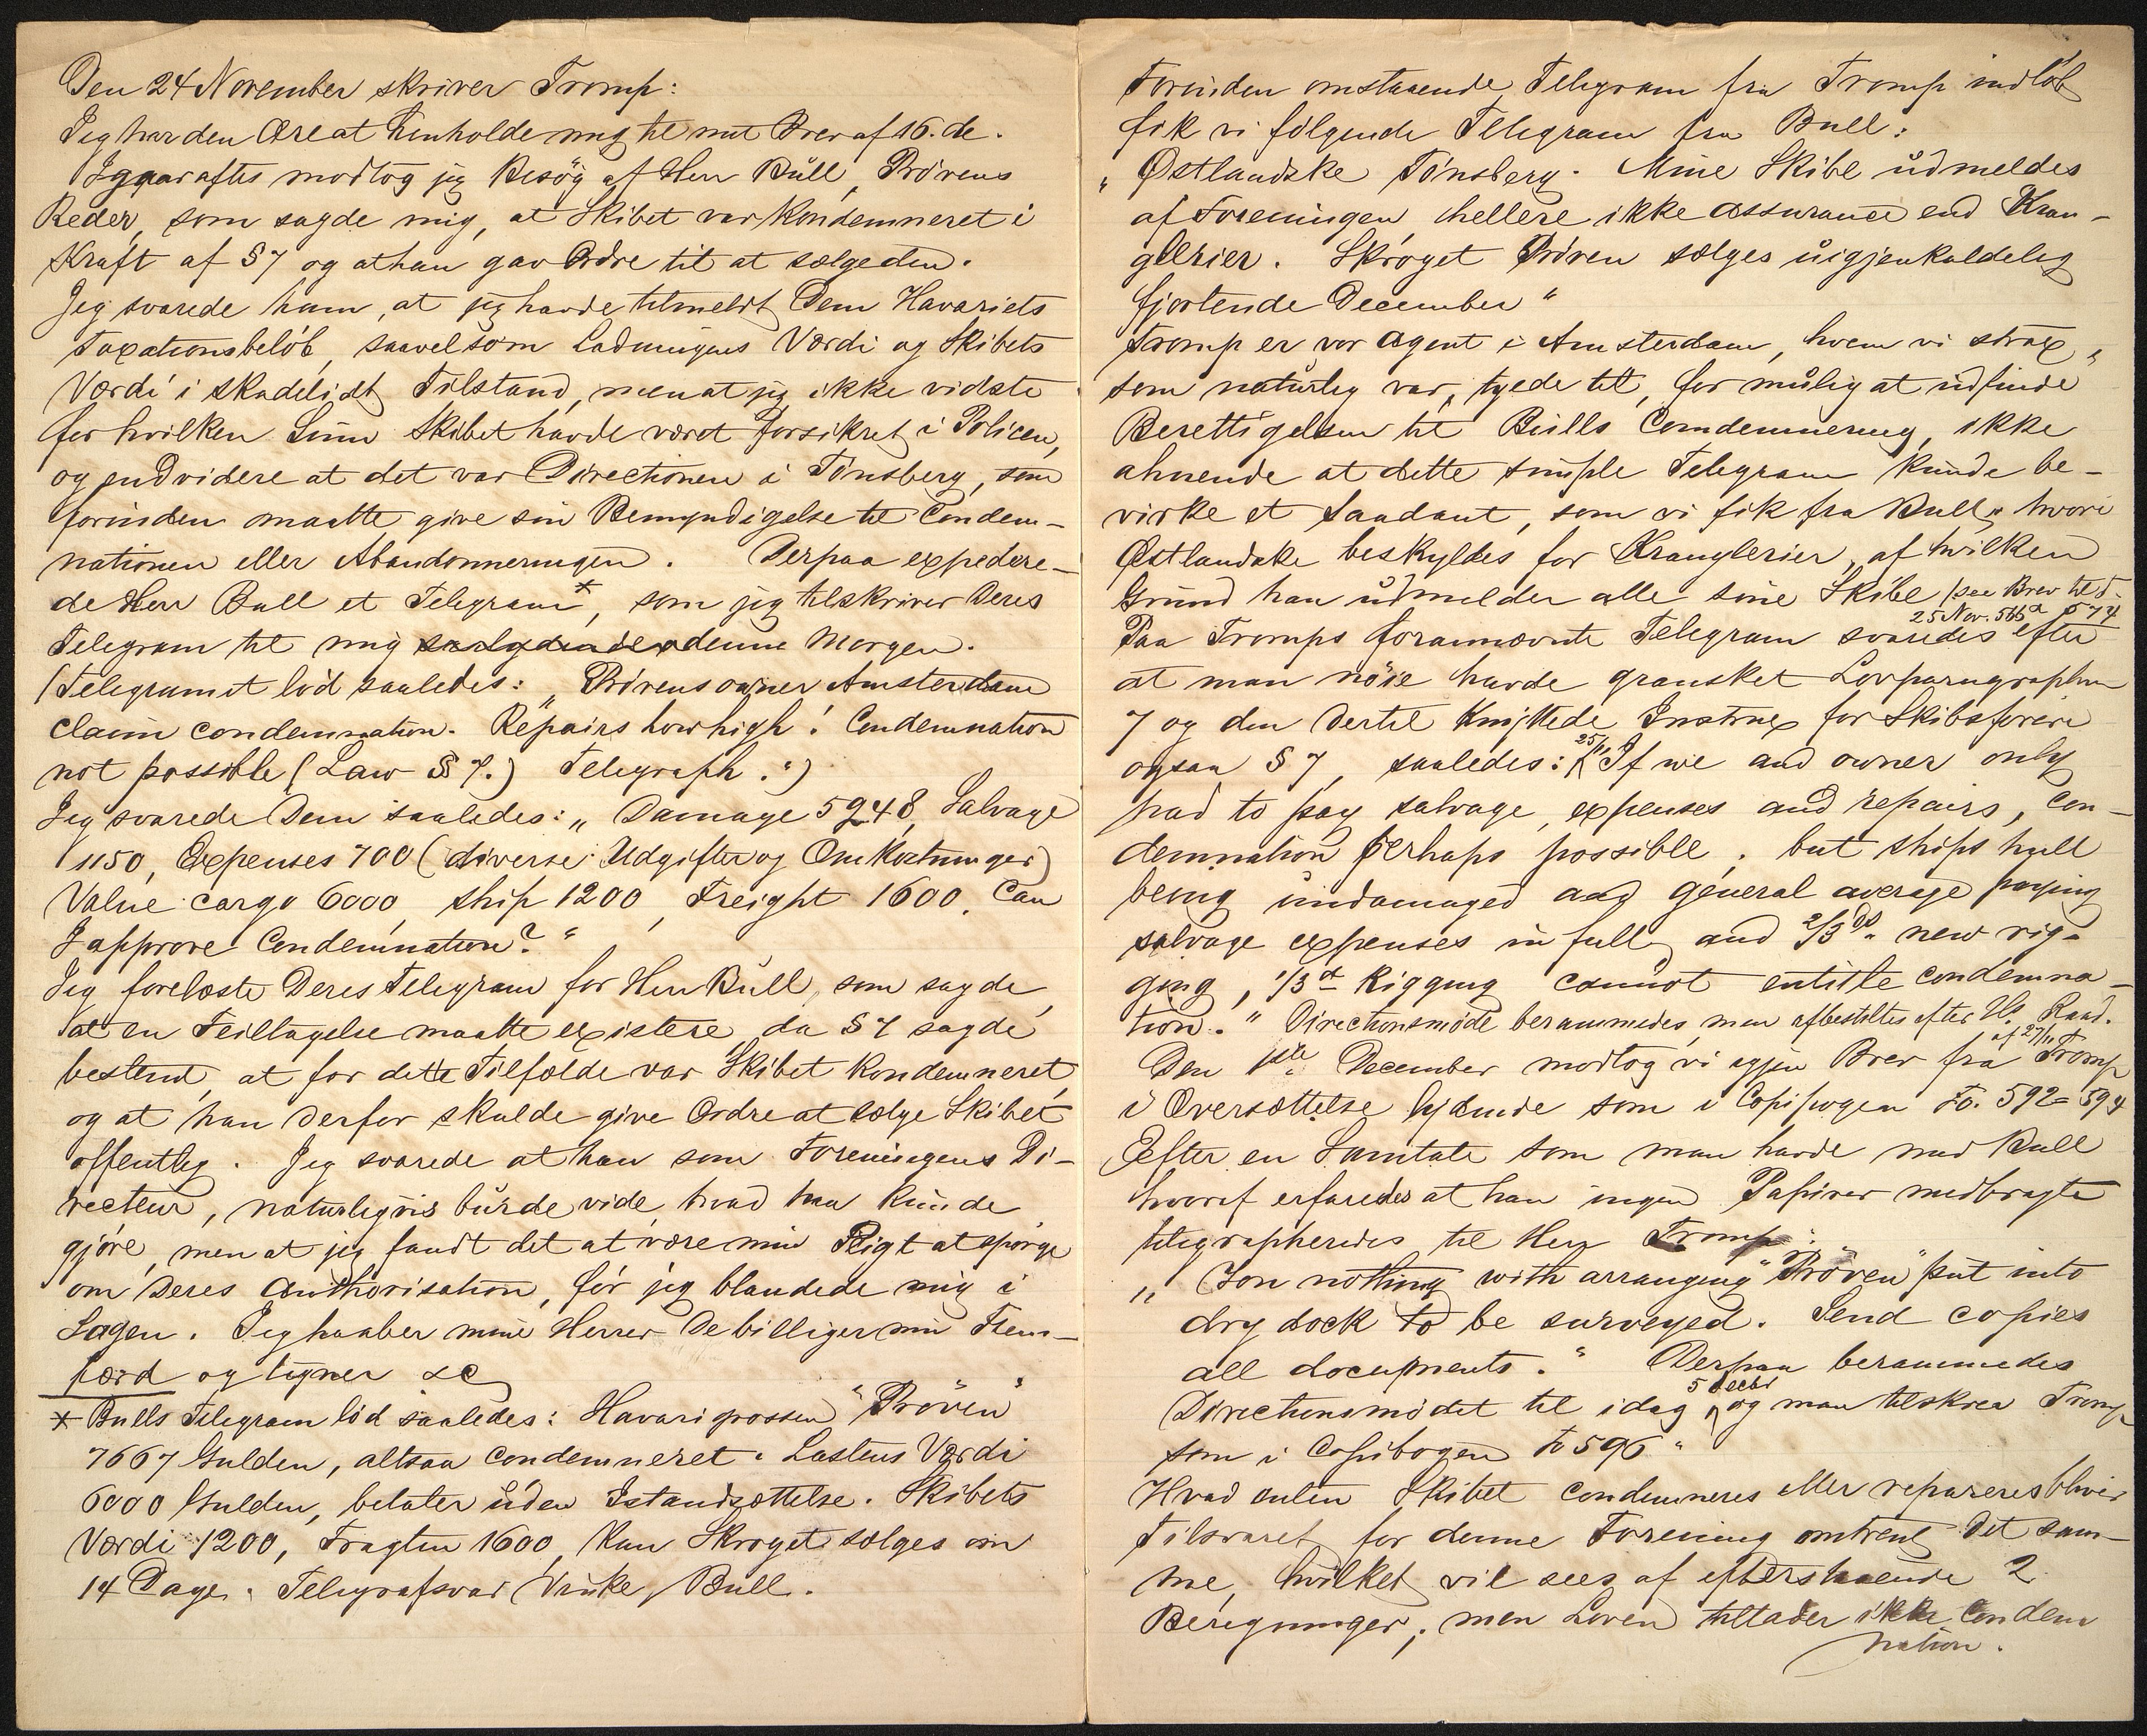 Den 24 November skriver Tromp:
Jeg har den Ære at henholde mig til mit Brev af 16. ds.
Iggaar aftes modtog jeg Besøg af Herr Bull, Prövens
Reder, som sagde mig, at Skibet var kondemneret i
Kraft af § 7 og at han gav Ordre til at sælge den.
Jeg svarede ham, at jeg havde tilmeldt Dem Havariets
Taxationsbeløb, saavelsom Ladningens Værdi og Skibets
Værdi i skadelidt Tilstand, men at jeg ikke vidste
for hvilken Sum Skibet havde været forsikret i Policen,
og endvidere at det var Directionen i Tönsberg, som
forinden maatte give sin Bemyndigelse til Condem-
nationen eller Abandonneringen. Derpaa expedere-
de Herr Bull et Telegram*, som jeg tilskriver Deres
Telegram til mig denne Morgen.
(Telegramet löd saaledes: „Prövens owner Amsterdam
claim condemnation. Repairs how high? Condemnation
not possible (Law § 7.) Telegraph.“)
Jeg svarede Dem saaledes: „Damage 5948, Salvage
1150, Expenses 700 (diverse Udgifter og Omkostninger)
Value cargo 6000, ship 1200, Freight 1600. Can
I approve Condemnation?“
Jeg forelæste Deres Telegram for Herr Bull, som sagde,
at en Feiltagelse maatte existere, da § 7 sagde
bestemt, at for dette Tilfælde var Skibet kondemneret,
og at han derfor skulde give Ordre at sælge Skibet
offentlig. Jeg svarede at han som Foreningens Di-
recteur, naturligvis burde vide, hvad han kunde
gjöre, men at jeg fandt det at være min Pligt at spörge
om Deres Authorisation, för jeg blandede mig i
Sagen. Jeg haaber mine Herrer De billiger min Frem-
færd og tegner &c
* Bulls Telegram löd saaledes: Havarigrossen “Pröven”
7667 Gulden, altsaa condemneret. Lastens Værdi
6000 Gulden, betaler uden Istandsættelse. Skibets
Værdi 1200, Fragten 1600, kan Skroget sælges om
14 Dage. Telegrafsvar Vinke, Bull.
Forinden omstaaende Telegram fra Tromp indlöb
fik vi fölgende Telegram fra Bull:
„Østlandske Tönsberg. Mine Skibe udmeldes
af Foreningen, hellere ikke assurance end Kran-
glerier. Skroget Pröven sælges uigjenkaldelig
fjortende December“
Tromp er vor Agent i Amsterdam, hvem vi strax,
som naturlig var, tyede til, for mulig at udfinde
Berettigelsen til Bulls Comdemnering, ikke
ahnende at dette simple Telegram kunde be-
virke et saadant, som vi fik fra Bull, hvori
Østlandske beskyldes for Kranglerier, af hvilken
Grund han udmelder alle sine Skibe (see Brev til d.
25 Nov. 566 a 574
Paa Tromps forannævnte Telegram svaredes efter
at man nöie havde gransket Lovparagraphen
7 og den dertil knyttede Instrux for Skibsförere
ogsaa § 7, saaledes: 25/11 „If we and owner only
had to pay salvage, expenses and repairs, con-
demnation perhaps possible, but ships hull
being undamaged and general average paying
salvage expenses in full and 2/3ds. new rig-
ging, 1/3d Rigging cannot entitle condemna-
tion.“ Directionsmöde berammedes, men afbestiltes efter Raad.
Den 1ste December modtog vi igjen Brev fra Tromp af 27/11
i Oversættelse lydende som i Copibogen Fo. 592=594
Efter en Samtale som man havde med Bull
hvoraf erfaredes at han ingen Papirer medbragte
telegrapheredes til Herr Tromp:
„Ion nothing with arranging “Pröven” put into
dry dock to be surveyed. Send copies
all documents.“ Derpaa berammedes
Directionsmödet til idag 5 Decbr og man tilskrev Tromp
som i Copibogen Fo 596.
Hvad enten Skibet condemneres eller repareres bliver
Tilsvaret for denne Forening omtrent det sam-
me, hvilket vil sees af efterstaaende 2
Beregninger, men Loven tillader ikke Condem
nation.